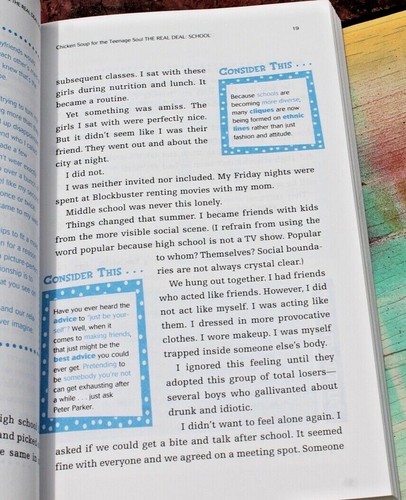 Chicken Soup for the Teenage Soul THE REAL DEAL: SCHOOL
19
subsequent classes. I sat with these
girls during nutrition and lunch. It
became a routine.
Yet something was amiss. The
girls I sat with were perfectly nice.
But it didn't seem like I was their
friend. They went out and about the
city at night.
I did not.
CONSIDER THIS . . .
Because schools are
becoming more diverse,
many cliques are now
being formed on ethnic
lines rather than just
fashion and attitude.
I was neither invited nor included. My Friday nights were
spent at Blockbuster renting movies with my mom.
Middle school was never this lonely.
Things changed that summer. I became friends with kids
from the more visible social scene. (I refrain from using the
word popular because high school is not a TV show. Popular
to whom? Themselves? Social bounda-
ries are not always crystal clear.)
We hung out together. I had friends
who acted like friends. However, I did
not act like myself. I was acting like
them. I dressed in more provocative
clothes. I wore makeup. I was myself
trapped inside someone else's body.
I ignored this feeling until they
adopted this group of total losers—
several boys who gallivanted about
drunk and idiotic.
I didn't want to feel alone again. I
CONSIDER THIS . . .
Have you ever heard the
advice to "just be your-
self"? Well, when it
comes to making friends,
that just might be the
best advice you could
ever get. Pretending to
be somebody you're not
can get exhausting after
a while . . . just ask
Peter Parker.
asked if we could get a bite and talk after school. It seemed
fine with everyone and we agreed on a meeting spot. Someone
high school
and picked
same in